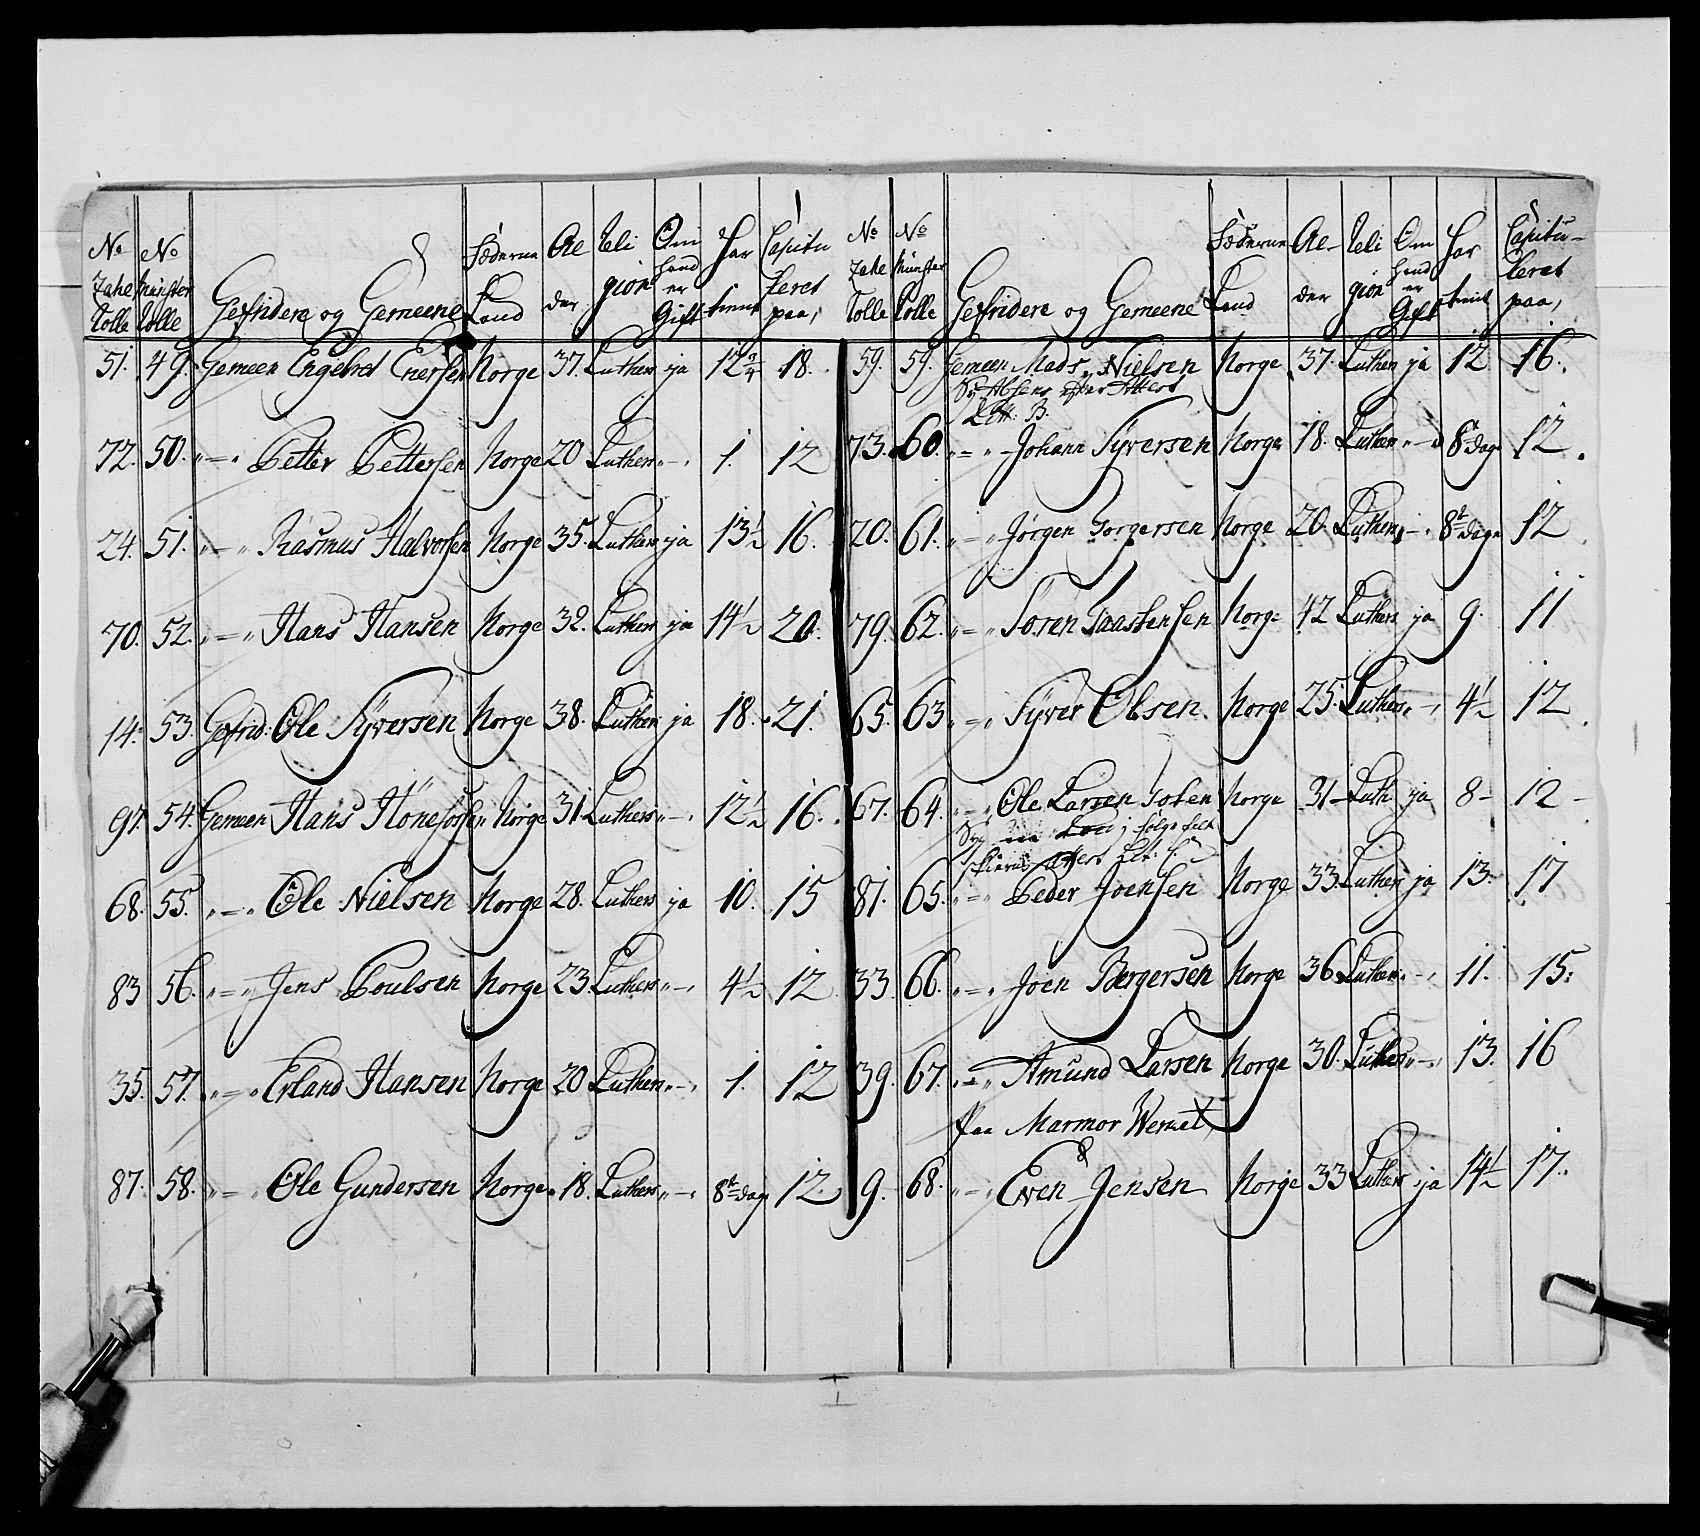 No No Föderne Al Reli Om Har Capitu
Zahl Münster Gefridere og Gemeene Land der gion hand tient leret
Rolle Rolle er Gift paa,
51. 49. Gemeen Engebret Enersen Norge 37. Luthers ja 12 3/4 18.
72. 50. „ — „ Petter Pettersen Norge 20 Luthers „—„ 1. 12
24. 51. „ — „ Rasmus Halvorsen Norge 35. Luthers ja 13 1/2 16.
70. 52. „ — „ Hans Hansen Norge 32. Luthers ja 14 1/2 20.
14. 53. Gefrid: Ole Syversen Norge 38. Luthers ja 18. 21.
97. 54. Gemeen Hans Hönefossen Norge 31. Luthers „—„ 12 1/2 16.
68. 55. „ — „ Ole Nielsen Norge 28. Luthers ja 10. 15
83 56. „ — „ Jens Poulsen Norge 23. Luthers „—„ 4 1/2 12
35. 57. „ — „ Erland Hansen Norge 20 Luthers „—„ 1. 12
87. 58. „ — „ Ole Gundersen Norge 18. Luthers „—„ 8t dage 12.
No No Föderne Al- Reli Om Har Capitu-
Zahl Münster Gefridere og Gemeene Land der gion hand tient leret
Rolle Rolle er Gift paa,
59. 59. Gemeen Mads Nielsen Norge 37. Luthers ja 12 16.
Syg Absens efter Attest
Litt: B.
73. 60. „ — „ Johann Syversen Norge 18. Luthers „—„ 8t dage 12.
20. 61. „ — „ Jörgen Borgersen Norge 20. Luthers „—„ 8t dage 12
79. 62. „ — „ Sören Taastensen Norge 42 Luthers ja 9. 11
65. 63 „ — „ Syver Olsen. Norge 25. Luthers „—„ 4 1/2 12
67. 64. „ — „ Ole Larsen Toten Norge 31 Luth ja 8 – 12 –
Syg i fölge felt
Attest Lit: C.
81. 65. „ — „ Peder Joensen Norge 33. Luthers ja 13. 17
33. 66. „ — „ Joen Bergersen Norge 36 Luthers „—„ 11. 15.
39. 67. „ — „ Amund Larsen Norge 30. Luthers „—„ 13. 16
Paa Marmor Wercket
9. 68. „ — „ Even Jensen Norge 33 Luthers ja 14 1/2 17.